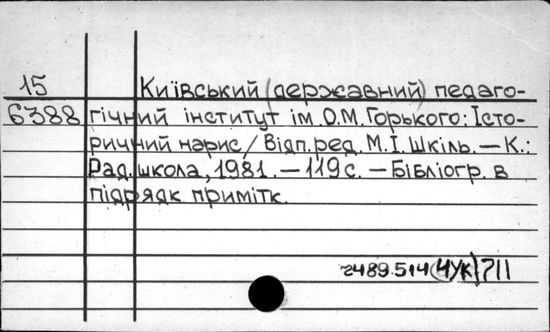 15 Київський (державний) педаго-
6388 гічний інститут ім. О.М. Горького: Істо-
ричний нарис / Відп. ред. М.І. Шкіль. — К.:
Рад. школа, 1981. — 119 с. — Бібліогр. в
підрядк. примітк.
2489.514 (4УК) 711